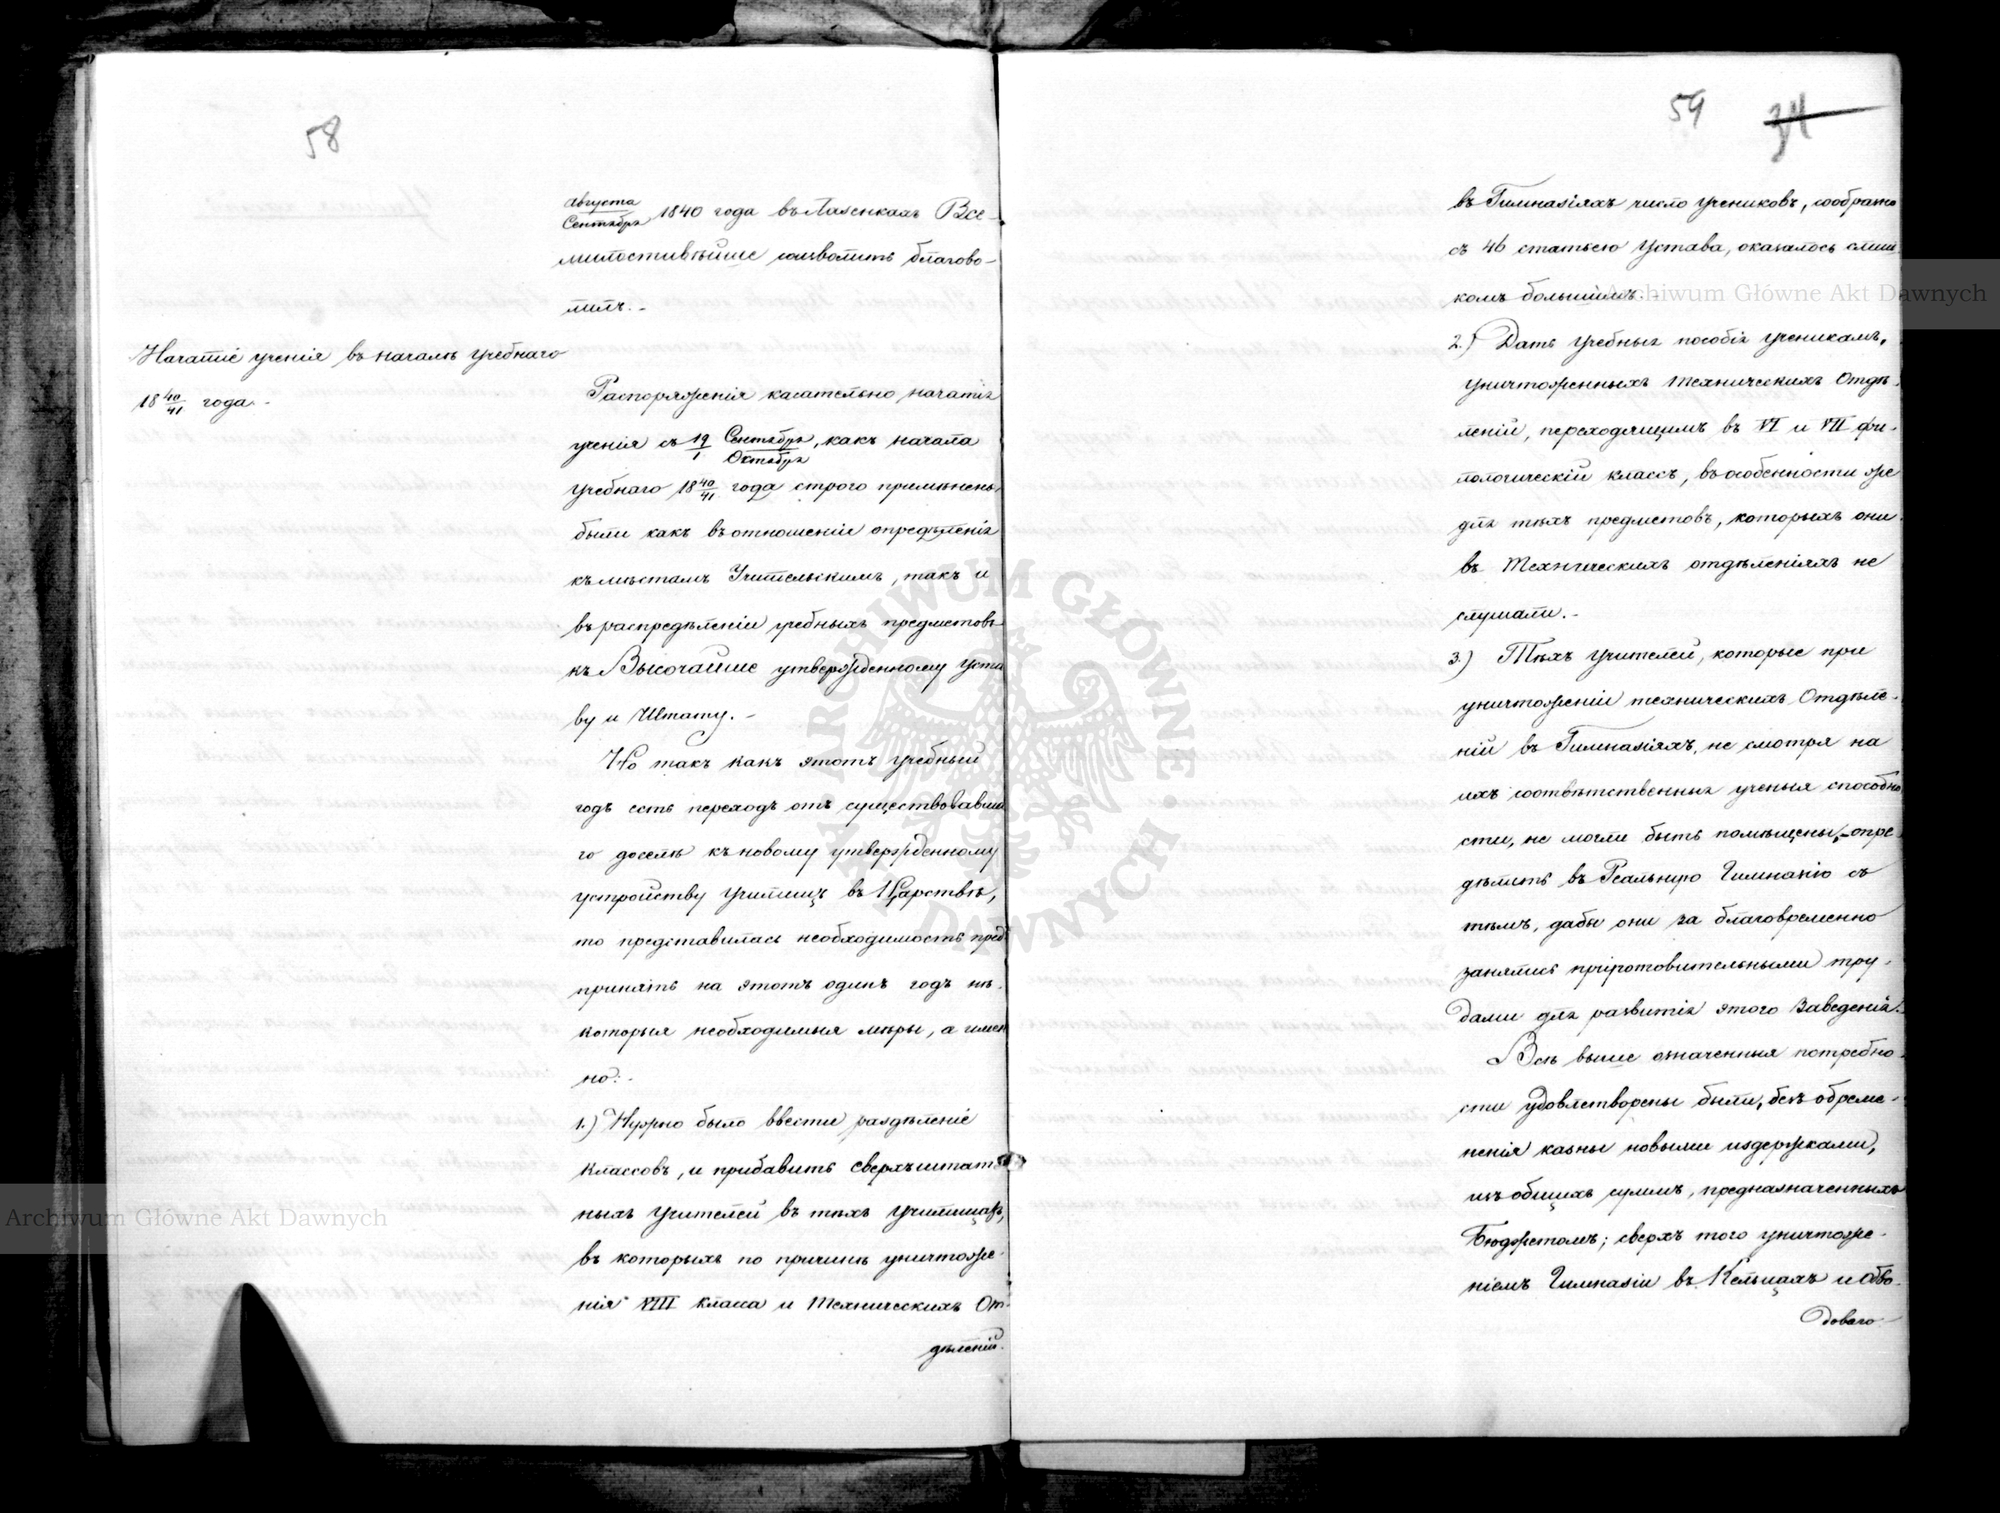 58
Августа
Сентября 1840 года въ Лазенкахъ Все-
милостивѣйше соизволить благово-
лилъ.-
Начатіе ученія въ началѣ учебнаго
18 40/41 года.-
Распоряженія касательно начатія
ученія съ 19/1 Сентября/Октября, какъ начала
учебнаго 18 40/41 года строго примѣнены
были какъ въ отношеніи опредѣленія
къ мѣстамъ Учительскимъ, такъ и
въ распредѣленіи учебныхъ предметовъ
къ Высочайше утвержденному Уста
ву и Штату.-
Но такъ какъ этотъ учебный
годъ есть переходъ отъ существовавша
го доселѣ къ новому утвержденному
устройству Училищъ въ Царствѣ,
то представилась необходимость пред
принять на этотъ одинъ годъ нѣ-
которыя необходимыя мѣры, а имен
но:-
1.) Нужно было ввести раздѣленіе
классовъ, и прибавить сверхъштат
ныхъ Учителей въ тѣхъ Училищахъ,
въ которыхъ по причинѣ уничтоже-
нія VIII класса и Техническихъ От-
дѣленій.
59 34
въ Гимназіяхъ число учениковъ, сообразно
съ 46 статьею Устава, оказалось слиш
комъ большимъ.-
2.) Дать учебныя пособія ученикамъ,
уничтоженныхъ Техническихъ Отдѣ-
леній, переходящимъ въ VI и VII фи-
лологическій классъ, въ особенности же
для тѣхъ предметовъ, которыхъ они
въ Техническихъ отдѣленіяхъ не
слушали.-
3.) Тѣхъ Учителей, которые при
уничтоженіи техническихъ Отдѣле-
ній въ Гимназіяхъ, не смотря на
ихъ соотвѣтственныя ученыя способно
сти, не могли быть помѣщены,- опре
дѣлить въ Реальную Гимназію съ
тѣмъ, дабы они за благовременно
занялись приготовительными тру-
дами для развитія этого Заведенія.
Всѣ выше означенныя потребно-
сти удовлетворены были, безъ обреме-
ненія казны новыми издержками,
изъ общихъ суммъ, предназначенныхъ
Бюджетомъ; сверхъ того уничтоже-
ніемъ Гимназіи въ Кельцахъ и Обво-
доваго
Archiwum Główne Akt Dawnych
Archiwum Główne Akt Dawnych
ARCHIWUM GŁÓWNE AKT DAWNYCH